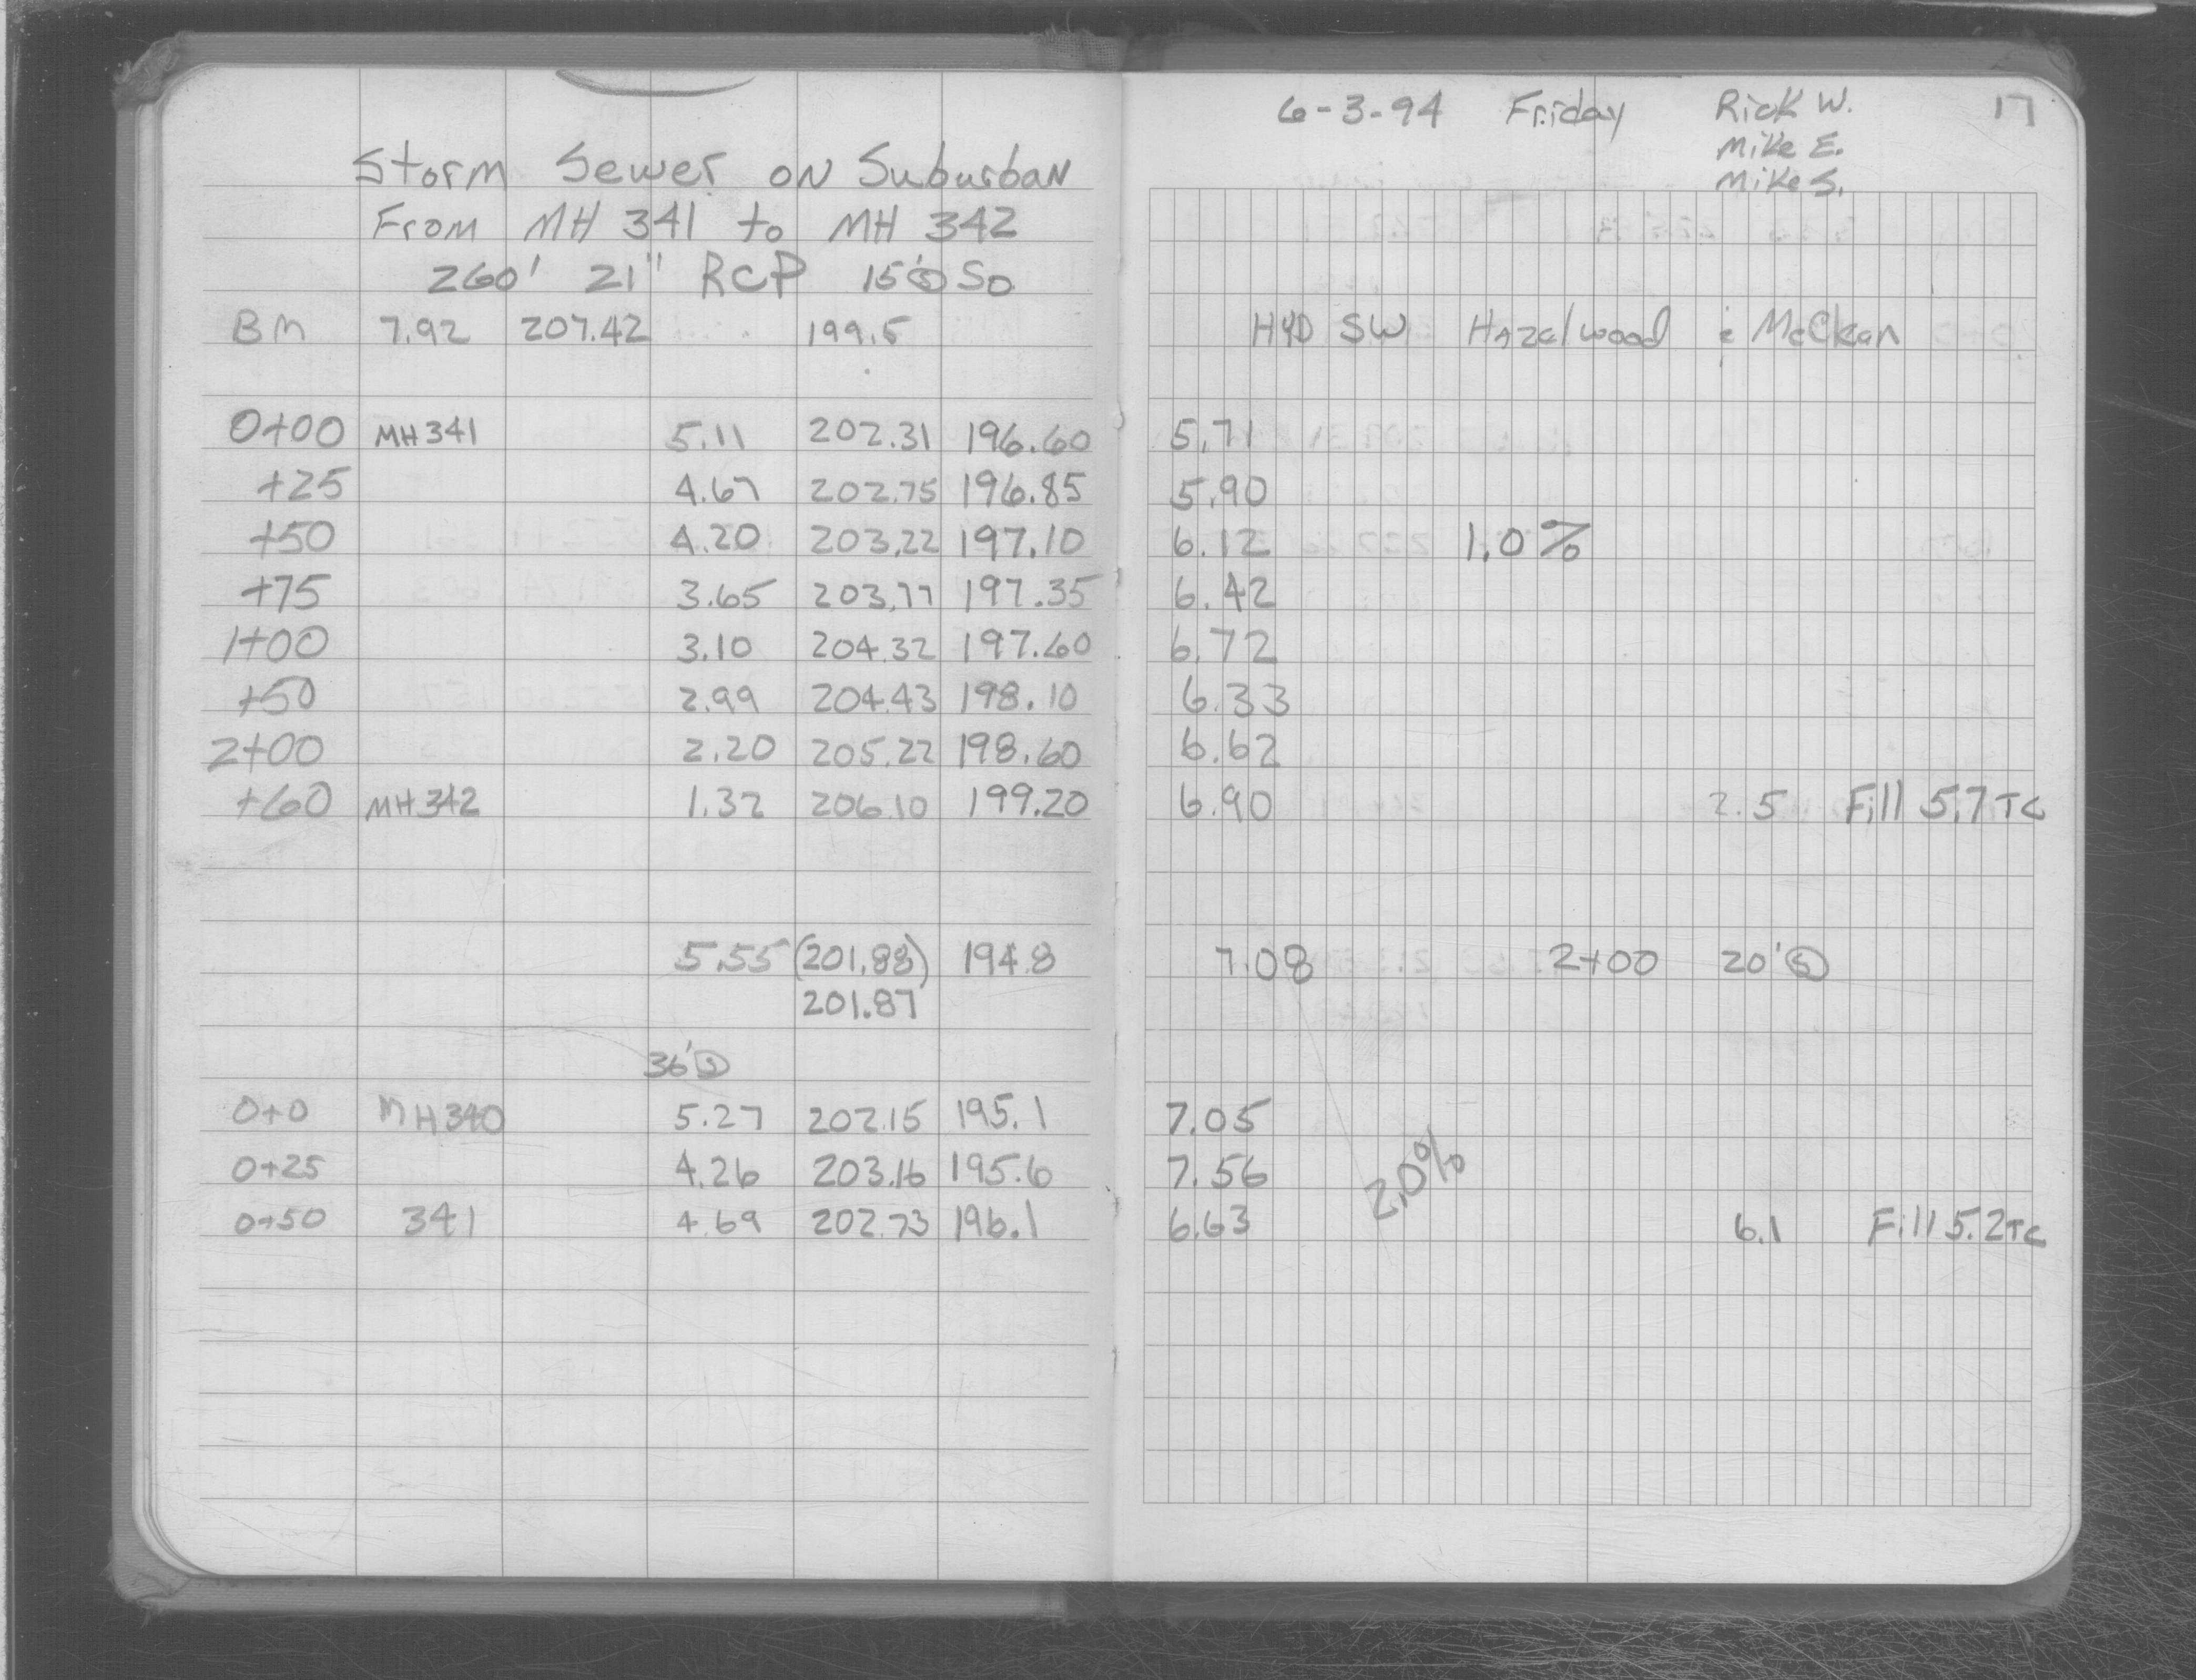 Storm Sewer on Suburban
From MH 341 to MH 342
260' 21" RCP 15' Ⓢ So
BM 7.92 207.42 199.5
0+00 MH 341 5.11 202.31 196.60
+25 4.67 202.75 196.85
+50 4.20 203.22 197.10
+75 3.65 203.77 197.35
1+00 3.10 204.32 197.60
+50 2.99 204.43 198.10
2+00 2.20 205.22 198.60
+60 MH 342 1.32 206.10 199.20
5.55 (201.88) 194.8
201.87
36' Ⓢ
0+0 MH 340 5.27 202.15 195.1
0+25 4.26 203.16 195.6
0+50 341 4.69 202.73 196.1
6-3-94 Friday Rick W. 17
Mike E.
Mike S.
HYD SW Hazelwood & McClean
5.71
5.90
6.12 1.0%
6.42
6.72
6.33
6.62
6.90 2.5 Fill 5.7 TC
7.08 2+00 20' Ⓢ
7.05
7.56 2.0%
6.63 6.1 Fill 5.2 TC